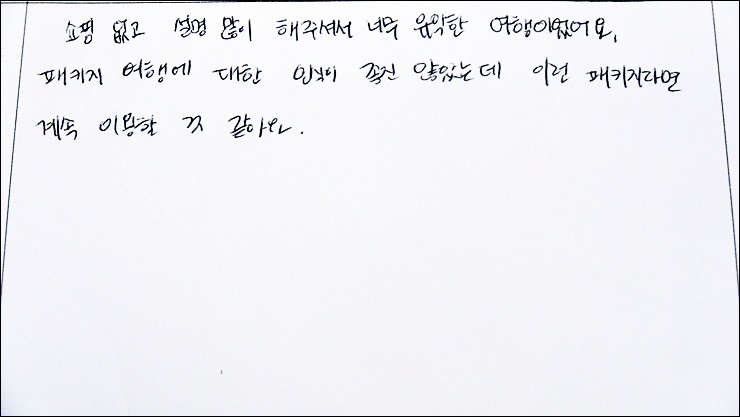 쇼핑 없고 설명 많이 해주셔서 너무 유익한 여행이었어요.
패키지 여행에 대한 인식이 좋진 않았는데 이런 패키지라면
계속 이용할 것 같아요.